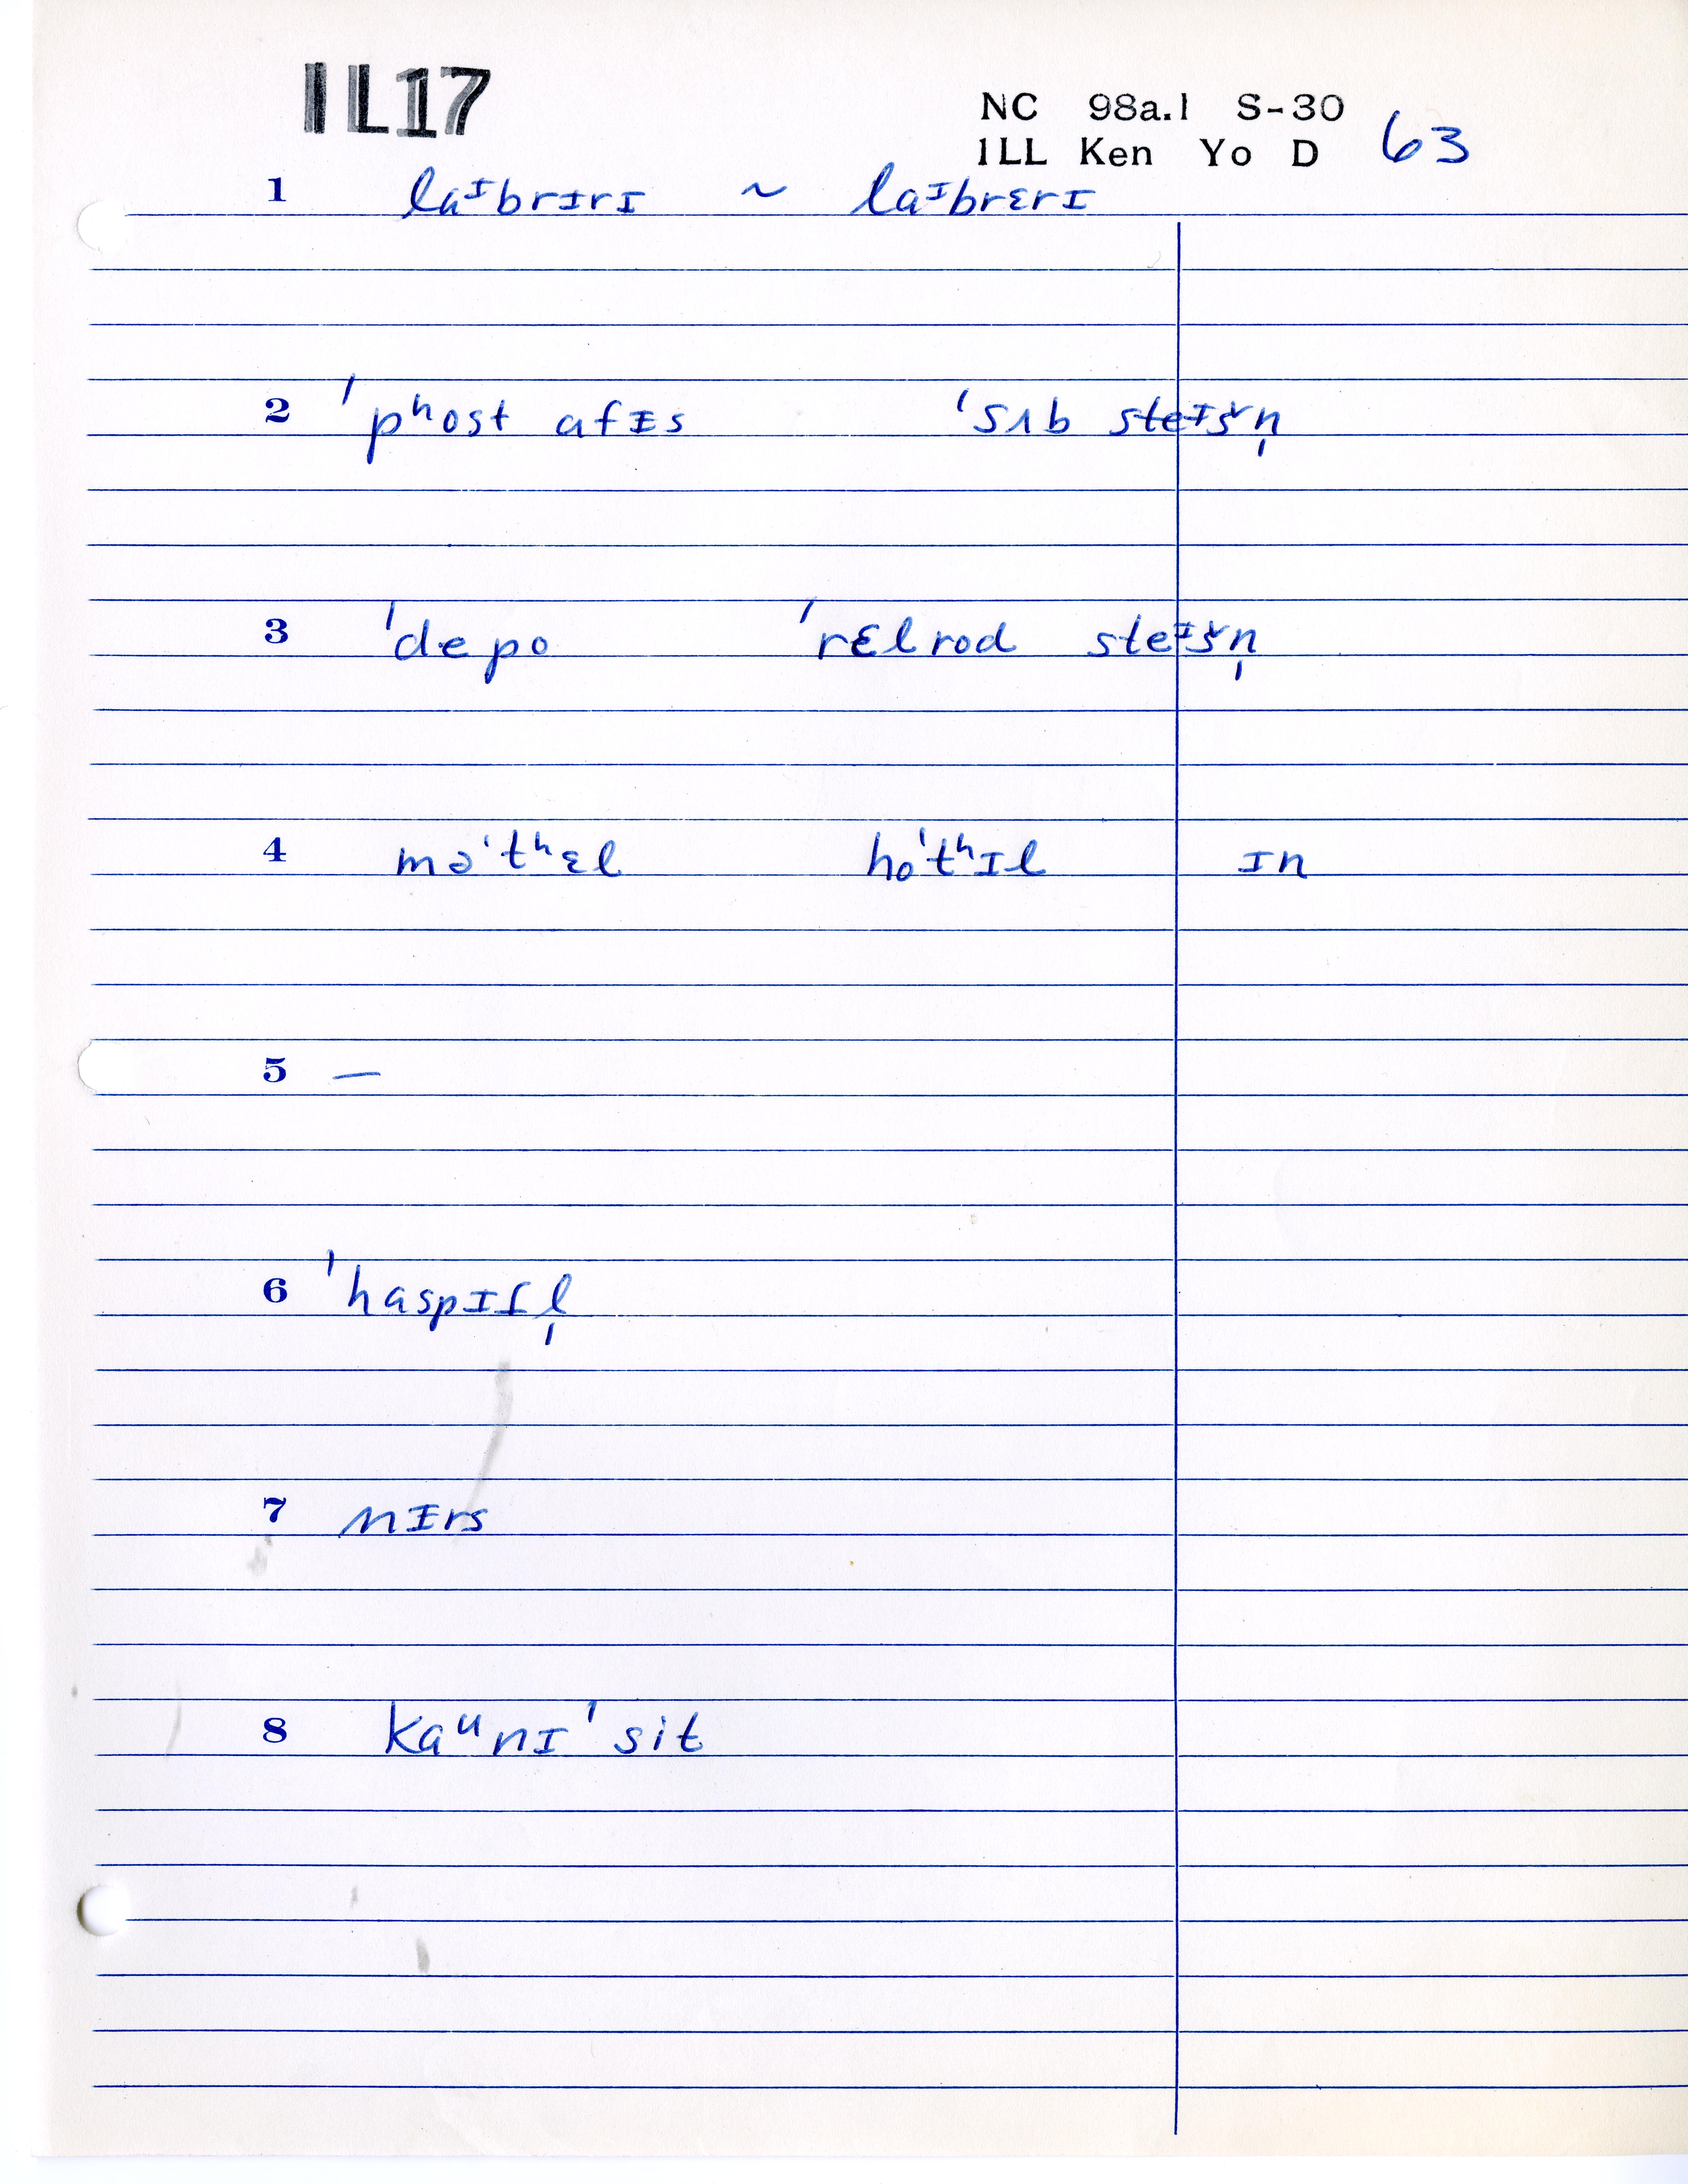 IL17
NC 98a.1 S-30
ILL Ken Yo D 63
1 laᶦbrɪrɪ ~ laᶦbrɛrɪ
2 ˈpʰost afɪs ˈsʌb steᶦšn̩
3 ˈdepo ˈrɛlrod steᶦšn̩
4 məˈtʰɛl hoˈtʰɪl ɪn
5 —
6 ˈhaspɪɾl̩
7 nɪrs
8 kaᵘnɪˈsit